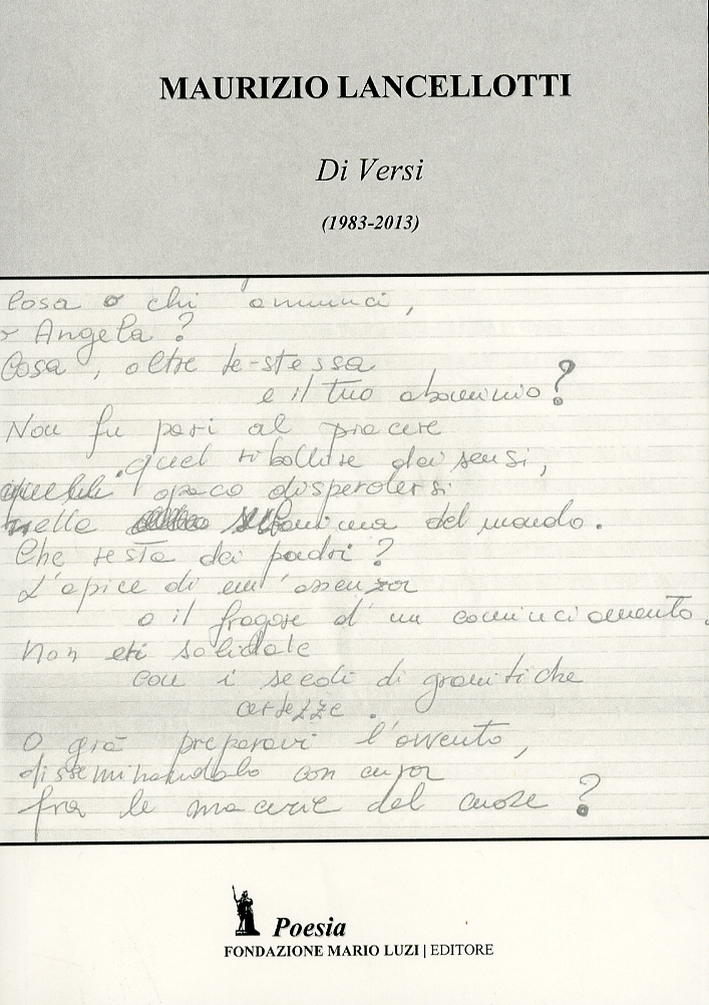 MAURIZIO LANCELLOTTI
Di Versi
(1983-2013)
Cosa o chi annunci,
Angela?
Cosa, oltre te-stessa
e il tuo abominio?
Non fu pari al piacere
quel ribollire dei sensi,
quel opaco disperdersi
nella anima del mondo.
Che resta dei padri?
L'apice di un'assenza
o il fragore d'un cominciamento.
Non eri solidale
con i secoli di granitiche
certezze.
O già preparavi l'avvento,
disseminandolo con cura
fra le macerie del cuore?
Poesia
FONDAZIONE MARIO LUZI | EDITORE